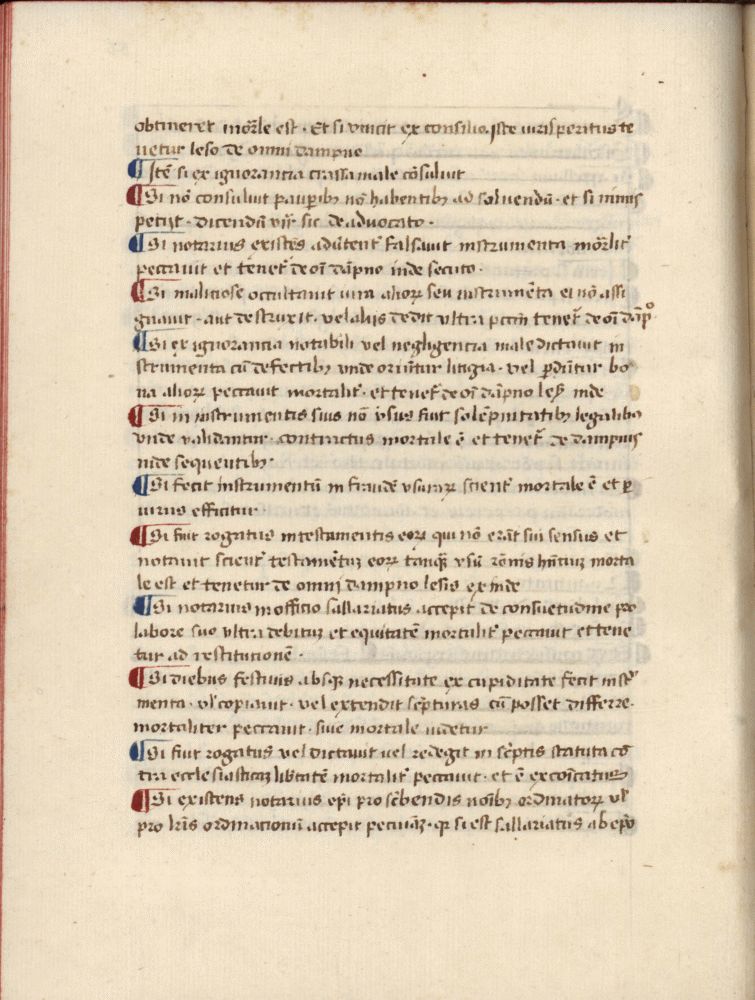 obtineret mõrle est · Et si vincit ex consilio. iste iurisperitus te
netur leso de omni dampno
¶ Itẽ si ex ignorantia crassa male cõsuluit
¶ Si nõ consuluit paupibꝫ nõ habentibꝫ ad soluendũ · et si nimis
petijt · dicendũ sic de aduocato ·
¶ Si notarius existẽs falsauit instrumenta mõrlit̃
peccauit et tenet̃ de oĩ dãpno inde secuto ·
¶ Si maliciose occultauit iura alioꝝ seu instrumẽta ei nõ assi
gnauit · aut destruxit · vel alijs dedit vltra pctm̃ tenet̃ de oĩ dãpº ·
¶ Si ex ignorantia notabili vel negligentia male dictauit in
strumenta cũ defectibꝫ vnde oriũtur litigia · vel ꝑdũtur bo
na alioꝝ peccauit mortalit̃ · et tenet̃ de oĩ dãpno inde
¶ Si in instrumentis suis nõ vsus fuit solẽpnitatibꝫ legalibꝫ
vnde validantur · contractus mortale ẽ et tenet̃ de dampnis
inde sequentibꝫ ·
¶ Si fecit instrumentũ in fraudẽ vsuraꝝ scient̃ mortale ẽ et ꝑ
iurus efficitur ·
¶ Si fuit rogatus in testamentis eoꝝ qui nõ erãt sui sensus et
notauit scient̃ testamẽtuꝫ eoꝝ tanqꝫ vsũ rõnis hñtiuꝫ morta
le est et tenetur de omni dampno lesis ex inde
¶ Si notarius in officio sallariatus accepit de consuetudine pro
labore suo vltra debituꝫ et equitatẽ mortalit̃ peccauit et tene
tur ad restitutionẽ ·
¶ Si diebus festiuis absqꝫ necessitate ex cupiditate fecit inst̃
menta · vl̃ copiauit · vel extendit sc̃pturas cũ posset differre ·
mortaliter peccauit · siue mortale uidetur
¶ Si fuit rogatus vel dictauit uel redegit in sc̃ptis statuta cõ
tra ecclesiasticaꝫ lib̃tatẽ mortalit̃ peccauit · et ẽ excõicatus
¶ Si existens notarius ep̃i pro sc̃bendis noĩbꝫ ordinatoꝝ vl̃
pro lr̃is ordinacionũ accepit pecuniã · qꝛ si est sallariatus ab ep̃o